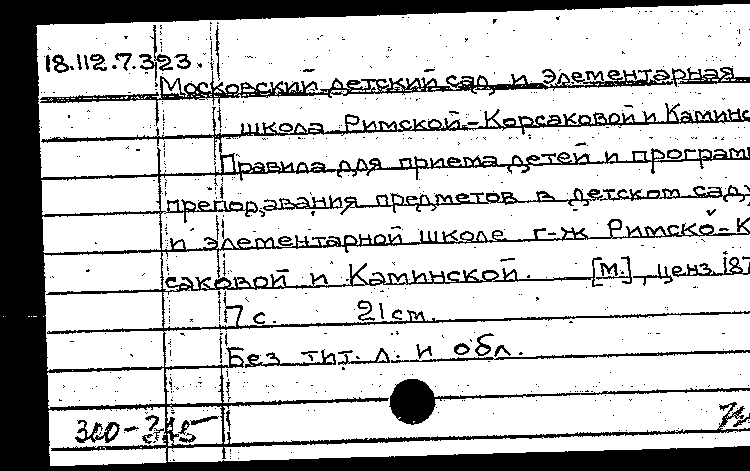 18.112.7.323.
Московский детский сад и элементарная
школа Римской-Корсаковой и Каминс
Правила для приема детей и програм
преподавания предметов в детском саду
и элементарной школе г-ж Римско-К
саковой и Каминской. [М.], ценз. 187
7 с. 21 см.
Без тит. л. и обл.
300-